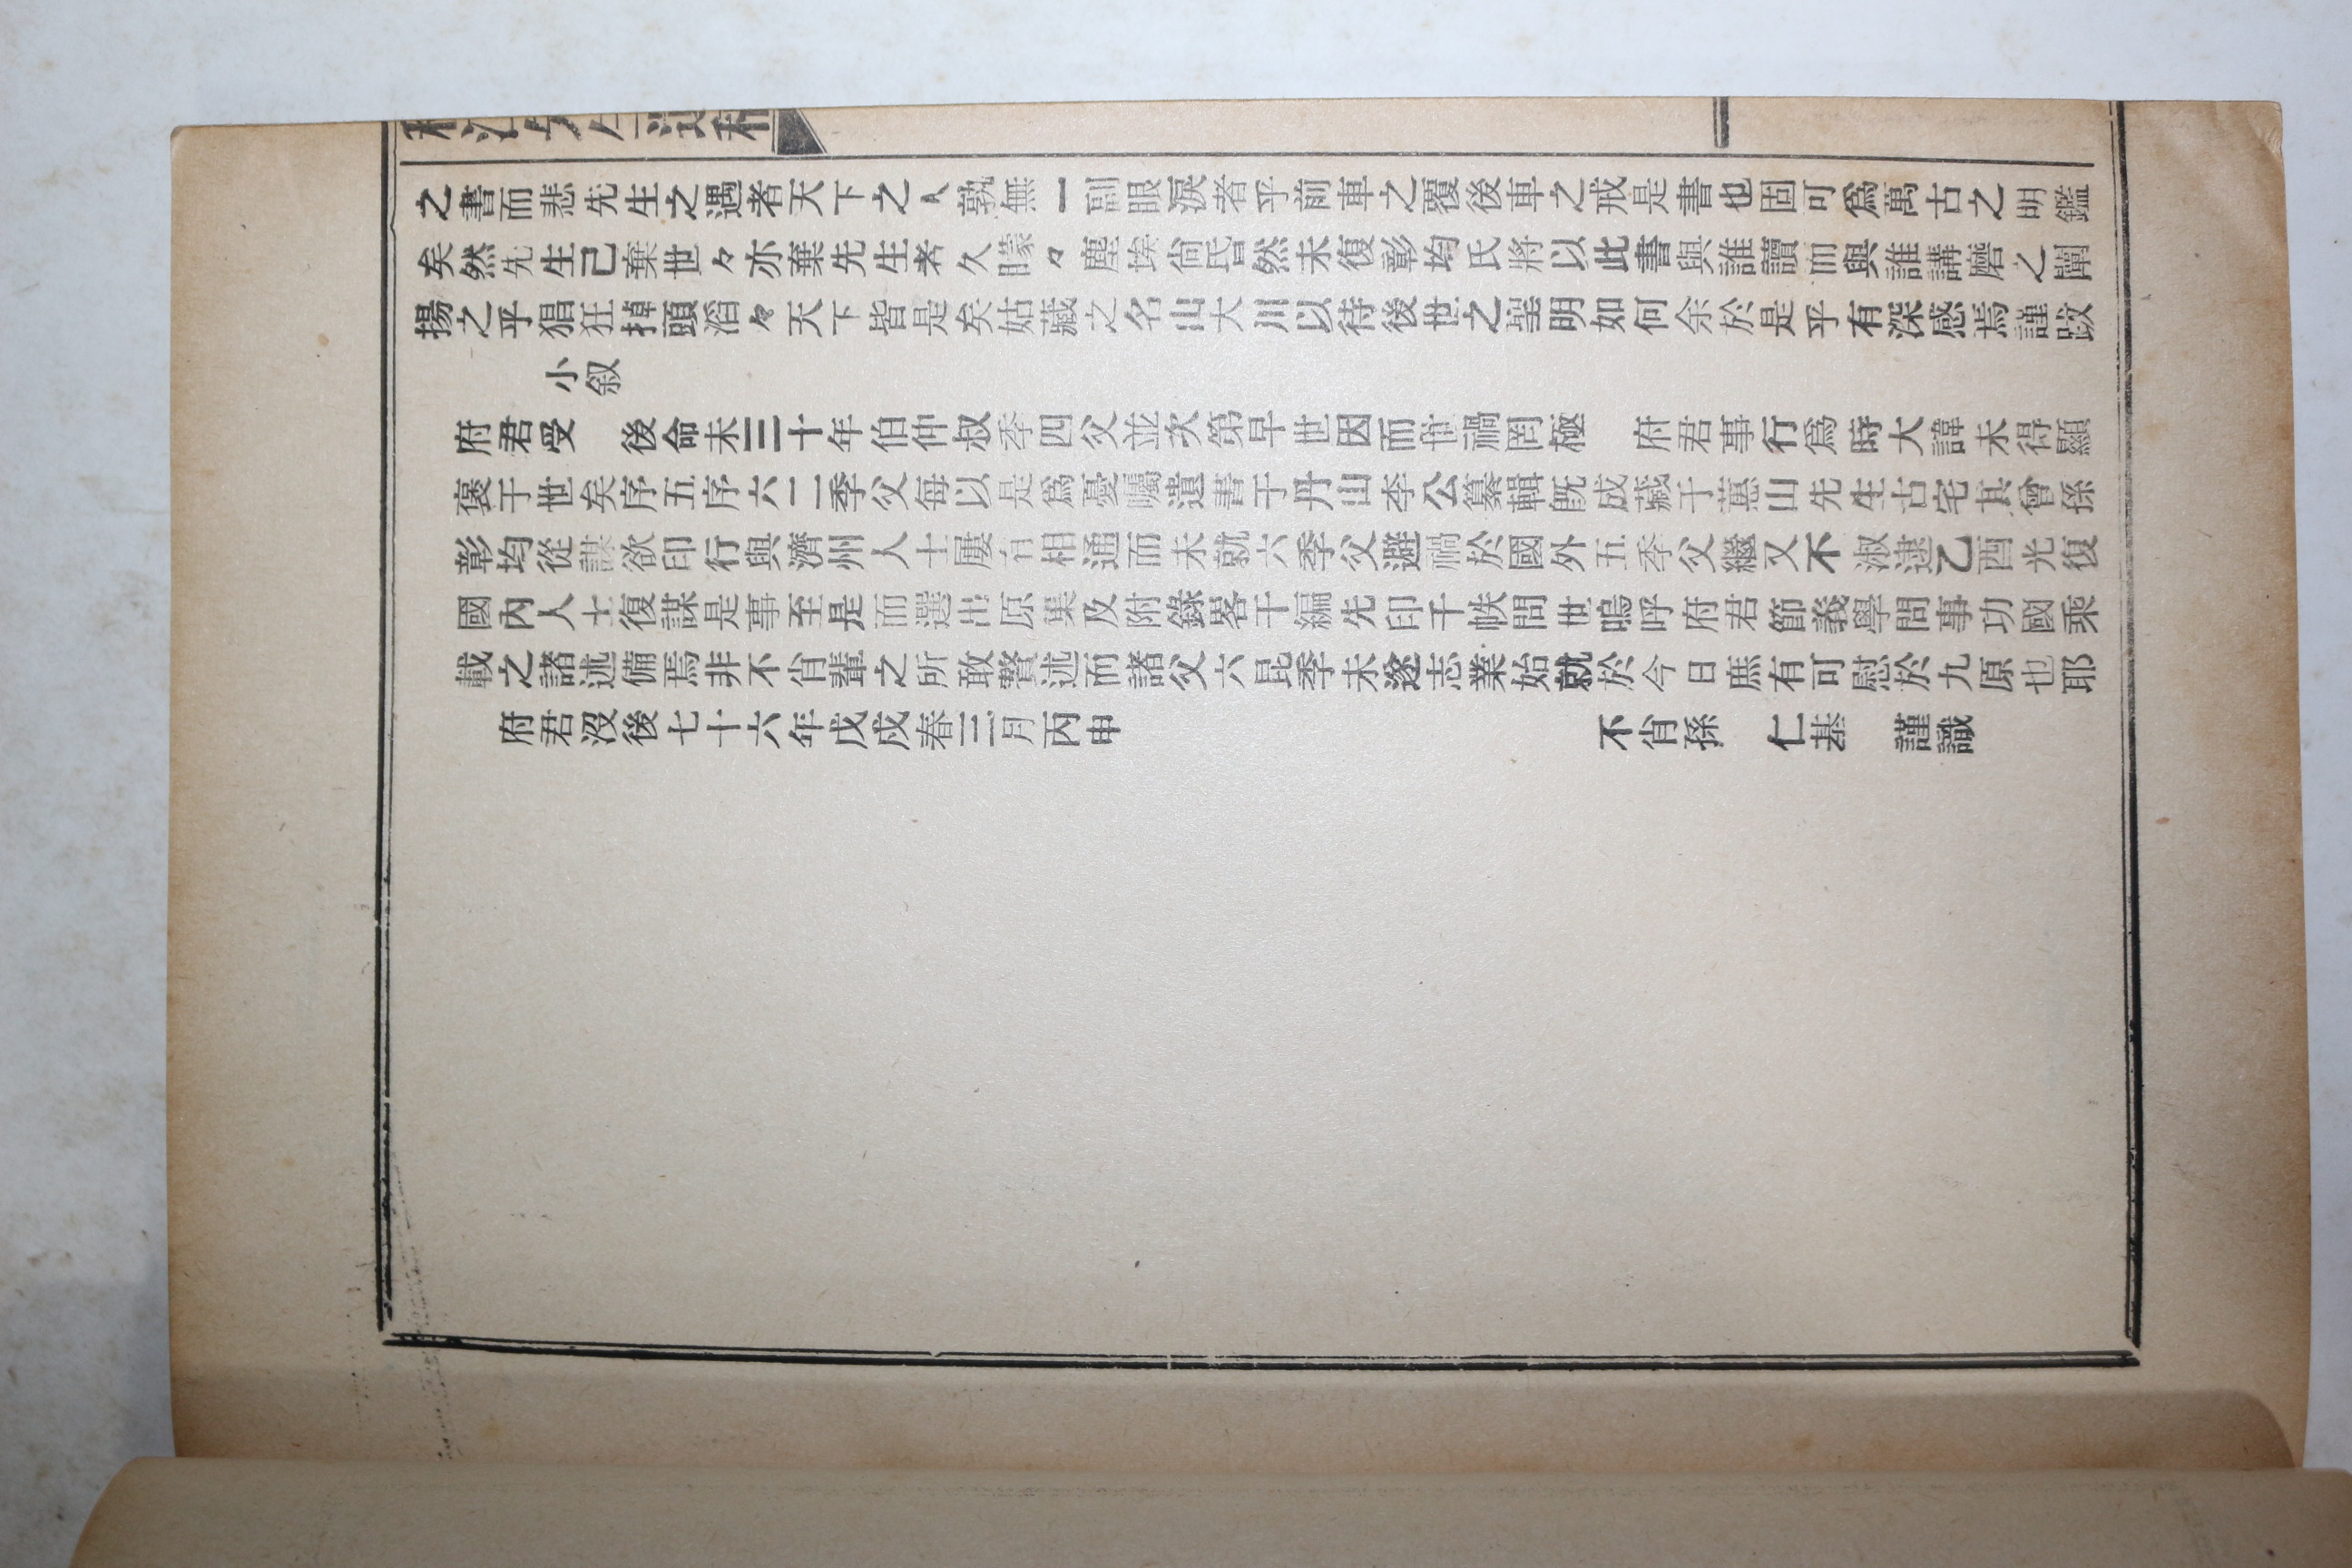 先生遺稿
之書而悲先生之遇者天下之人孰無一副眼淚者乎前車之覆後車之戒是書也固可爲萬古之明鑑
矣然先生己棄世々亦棄先生者久矇々塵埃尙昏然未復彰均氏將以此書與誰讀而與誰講磨之闡
揚之乎猖狂掉頭滔々天下皆是矣姑藏之名山大川以待後世之聖明如何余於是乎有深感焉謹跋
小叙
府君受 後命未三十年伯仲叔季四父並次第早世因而世禍罔極 府君事行爲時大諱未得顯
褒于世矣序五序六二季父每以是爲憂囑遺書于丹山李公纂輯旣成藏于蕙山先生古宅其曾孫
彰均從謀欲印行與濟州人士屢有相通而未就六季父避禍於國外五季父繼又不淑逮乙酉光復
國內人士復謀是事至是而選出原集及附錄畧干編先印千帙問世嗚呼府君節義學問事功國乘
載之諸述備焉非不肖輩之所敢贅述而諸父六昆季未遂志業始就於今日庶有可慰於九原也耶
府君沒後七十六年戊戍春三月丙申 不肖孫 仁基 謹識